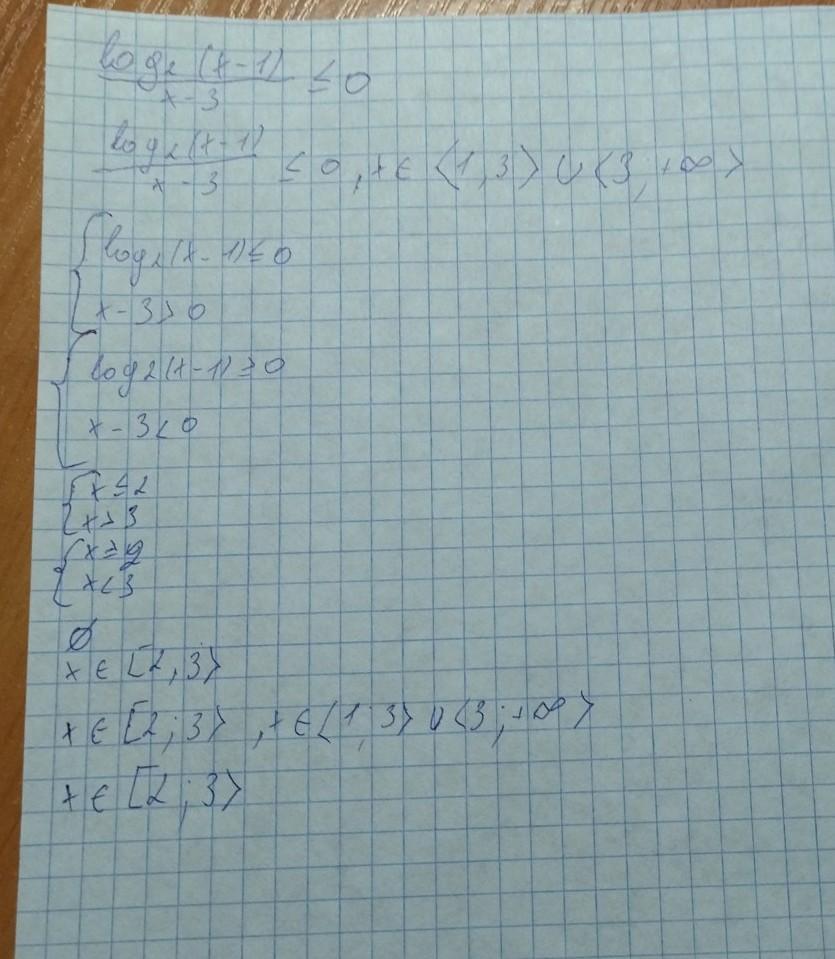 log₂(x-1)
x-3 ≤ 0
log₂(x-1)
x-3 ≤ 0, x ∈ ⟨1, 3⟩ ∪ ⟨3; +∞⟩
log₂(x-1) ≤ 0
x-3 > 0
log₂(x-1) ≥ 0
x-3 < 0
x ≤ 2
x > 3
x ≥ 2
x < 3
∅
x ∈ [2, 3⟩
x ∈ [2; 3⟩, x ∈ ⟨1; 3⟩ ∪ ⟨3; +∞⟩
x ∈ [2; 3⟩